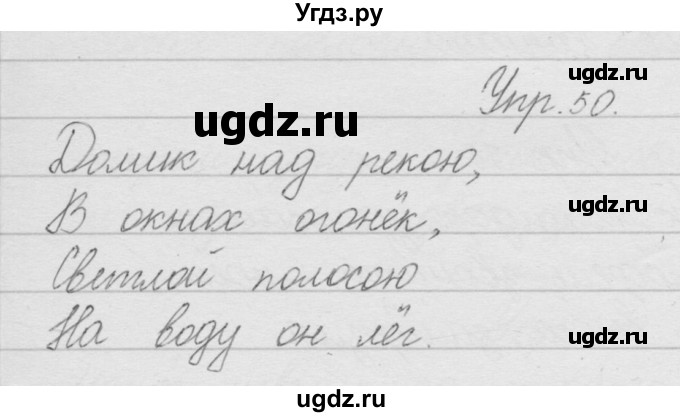 Угдз.ру
Упр. 50.
ugdz.ru
ugdz.ru
Домик над рекою,
В окнах огонёк,
ugdz.ru
Светлой полосою
На воду он лёг.
ugdz.ru
ugdz.ru